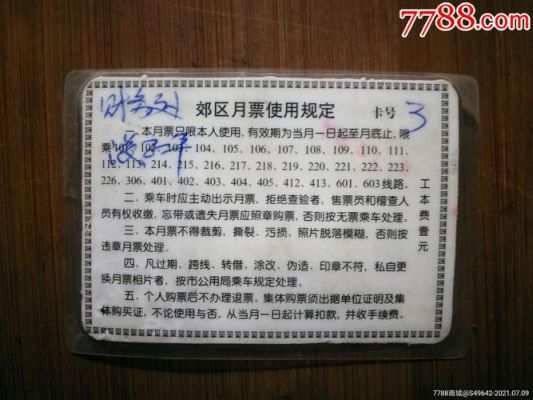 7788.com
财务处
郊区月票使用规定
卡号 3
一、本月票只限本人使用，有效期为当月一日起至月底止，限
乘101、102、103、104、105、106、107、108、109、110、111、
112、113、214、215、216、217、218、219、220、221、222、223、
226、306、401、402、403、404、405、412、413、601、603线路。
二、乘车时应主动出示月票，拒绝查验者，售票员和稽查人
员有权收缴，忘带或遗失月票应照章购票，否则按无票乘车处理。
三、本月票不得裁剪、撕裂、污损、照片脱落模糊，否则按
违章月票处理。
四、凡过期、跨线、转借、涂改、伪造、印章不符，私自更
换月票相片者，按市公用局乘车规定处理。
五、个人购票后不办理退票。集体购票须出据单位证明及集
体购买证，不论使用与否，从当月一日起计算扣款，并收手续费。
工本费壹元
7788商城@S49642-2021.07.09